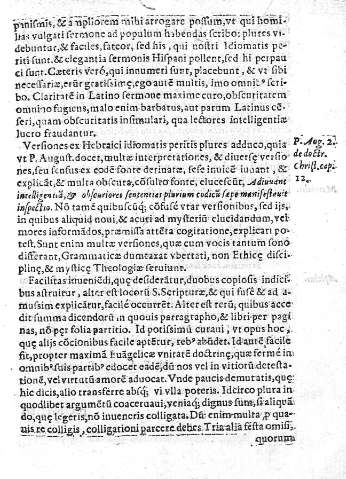 panismis, & ampliorem mihi arrogare possum, vt qui homi-
lias vulgari sermone ad populum habendas scribo; plures vi-
debuntur, & faciles, fateor, sed his, qui nostri Idiomatis pe-
riti sunt. & elegantia sermonis Hispani pollent, sed hi perpau
ci sunt. Cæteris verò, qui innumeri sunt, placebunt, & vt sibi
necessariæ, erũt gratissimę, ego autẽ multis, imo omnibꝰ scri
bo. Claritatẽ in Latino sermone maximẽ curo, obscuritatem
omnino fugiens, malo enim barbatus, aut parum Latinus cẽ-
seri, quam obscuritatis insimulari, qua lectores intelligentiæ
lucro fraudantur.
Versiones ex Hebraici idiomatis peritis plures adduco, quia
vt P. August. docet, multæ interpretationes, & diuersę versio-
nes, seu sensus ex eodẽ fonte deriuatæ, sese inuicẽ iuuant, &
explicãt, & multa obscura, cõsulto fonte, elucescũt, Adiuuant
intelligentiã, & obscuriores sententias plurium codicũ sæpe manifestauit
inspectio. Nõ tamẽ quibuscũq; cõfusè vtar versionibus, sed ijs,
in quibus aliquid noui, & acuri ad mysteriũ elucidandum, vel
mores informados, præmissa attẽta cogitatione, explicari po-
test. Sunt enim multæ versiones, quæ cum vocis tantum sono
differant, Grammaticæ dumtaxat vbertati, non Ethicę disci-
plinę, & mysticę Theologiæ seruiunt.
Facilitas inueniẽdi, quę desideratur, duobus copiosis indici
bus astruitur, alter est locorũ S. Scripturæ, & qui fusè & ad a-
mussim explicãtur, facilè occurrẽt. Alter est rerũ, quibus acce
dit summa dicendorũ in quouis paragrapho, & libri per pagi
nas, nõ per folia partitio. Id potissimũ curaui, vt opus hoc,
quę alijs cõcionibus facile aptẽtur, rebꝰ abũdet. Id autẽ facilè
fit, propter maximã Euãgelicæ vnitatẽ doctrinę, quæ fermè in
omnibꝰ suis partibꝰ edocet eadẽ, dũ nos vel in vitiorũ detesta-
tionẽ, vel virtutũ amorẽ aduocat. Vnde paucis demutatis, quę
hic dicis, alio transferre absq; vi vlla poteris. Idcirco plura in
quodlibet argumẽtũ coaceruaui, veniaq; dignus sum, si aliquã
do, quę legeris, nõ inueneris colligata. Dũ enim multa, ꝑ qua-
uis re colligis, colligationi parcere debes. Tria alia festa omisi,
quorum
P. Aug. 2.
de doctr.
Christ. cap.
12.